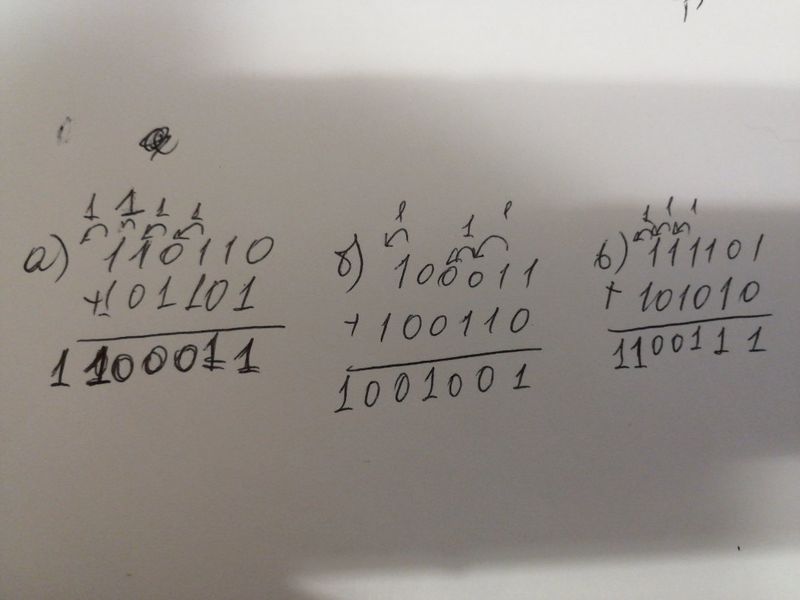 1 1 1 1
а) 110110
+101101
1100011
1 1 1
б) 100011
+ 100110
1001001
1 1 1
в) 111101
+ 101010
1100111